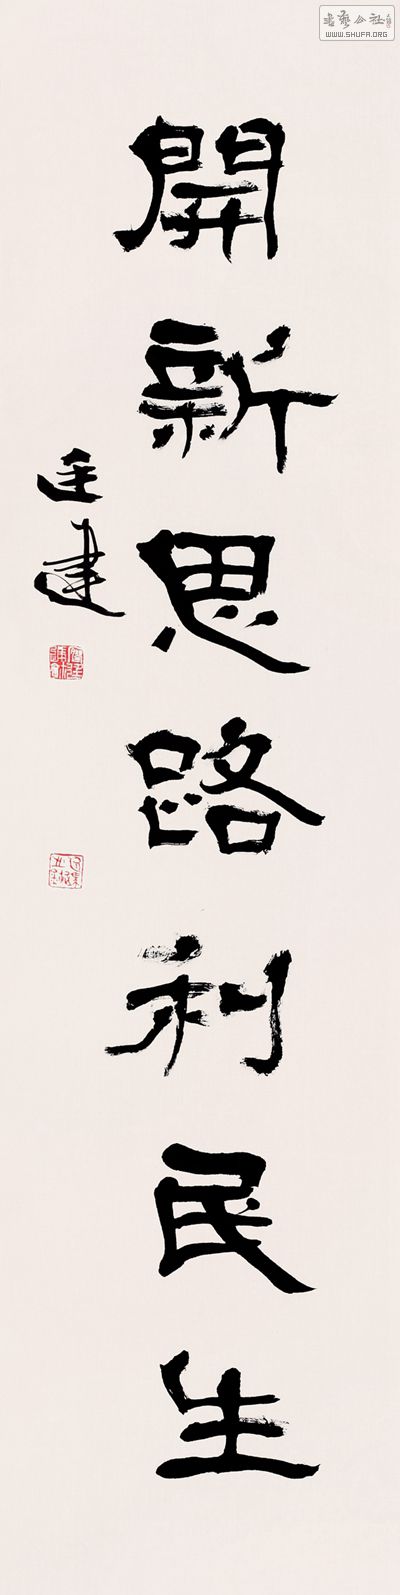 書藝公社
WWW.SHUFA.ORG
開新思路利民生
廷建